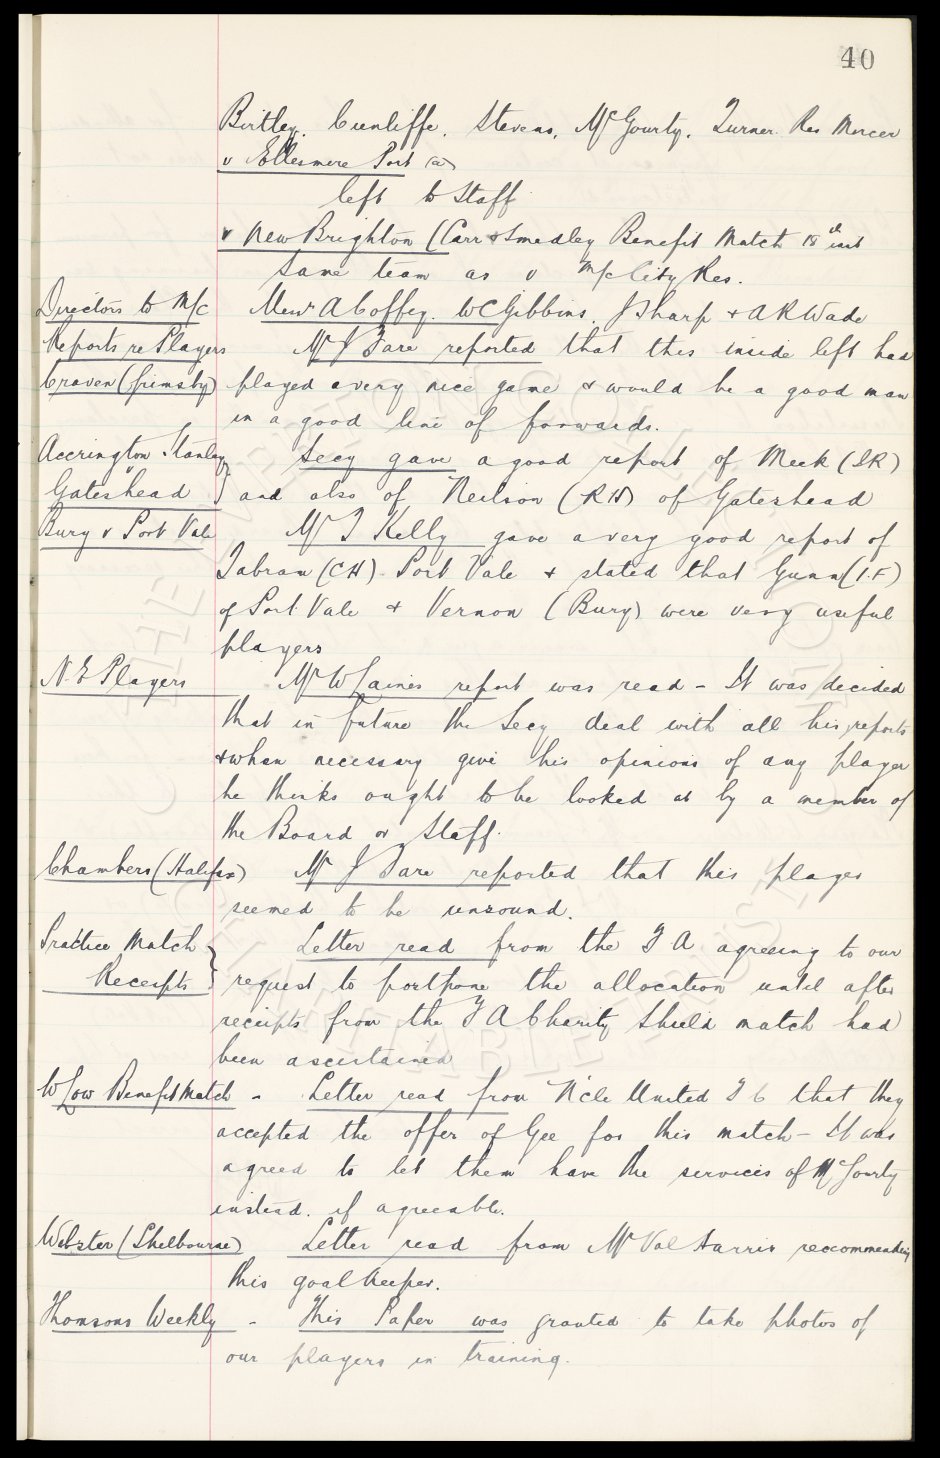 40
Birtley. Cunliffe. Stevens, McGourty. Turner. Res Mercer
v Ellesmere Port (a)
left to Staff
v New Brighton (Carr & Smedley Benefit Match 18th inst
Same team as v M/c City Res.
Directors to M/c Messrs A Coffey. W C Gibbins. J Sharp & A R Wade
Reports re Players Mr J Fare reported that this inside left had
Craven (Grimsby) played a very nice game & would be a good man
in a good line of forwards.
Accrington Stanley Secy gave a good report of Meek (IR)
Gateshead and also of Neilson (RH) of Gateshead
Bury v Port Vale Mr T Kelly gave a very good report of
Tabram (CH) Port Vale & stated that Gunn (I.F)
of Port Vale & Vernon (Bury) were very useful
players
N.E Players Mr W Caines report was read - It was decided
that in future the Secy deal with all his reports
& when necessary give his opinions of any player
he thinks ought to be looked at by a member of
the Board or Staff.
Chambers (Halifax) Mr J Fare reported that this player
seemed to be unsound.
Practice Match Letter read from the F A agreeing to our
Receipts request to postpone the allocation until after
receipts from the F A Charity Shield match had
been ascertained
W Low Benefit Match - Letter read from N'cle United F C that they
accepted the offer of Gee for this match - It was
agreed to let them have the services of McGourty
instead. if agreeable.
Webster (Shelbourne) Letter read from Mr Val Harris reccommending
this goalkeeper.
Thomsons Weekly - This Paper was granted to take photos of
our players in training.
THE EVERTON COLLECTION CHARITABLE TRUST